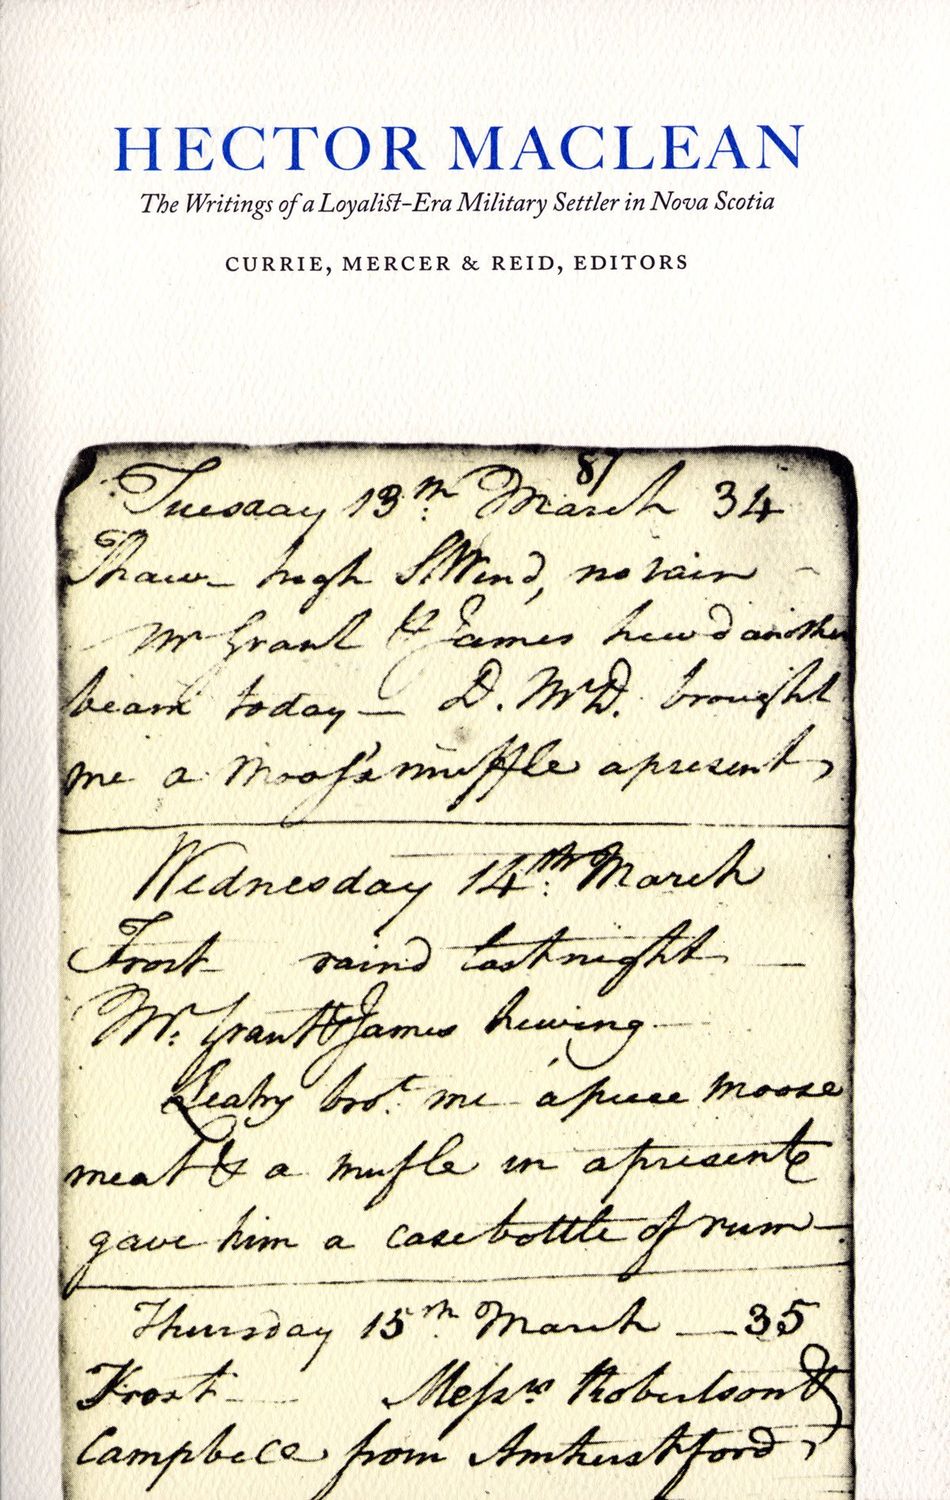 HECTOR MACLEAN
The Writings of a Loyalist-Era Military Settler in Nova Scotia
CURRIE, MERCER & REID, EDITORS
87
Tuesday 13th. March 34
Thaw – high S.Wind, no rain –
Mr Grant & James hew'd another
beam today — D. McD. brought
me a Moose's muffle a present,
Wednesday 14th: March
Frost raind last night —
Mr. Grant & James hewing —
Leahy brot. me a piece moose
meat & a mufle in a present &
gave him a case bottle of rum —
Thursday 15th. March — 35
Frost — Messrs. Robertson &
Campbell from Amherst ford,